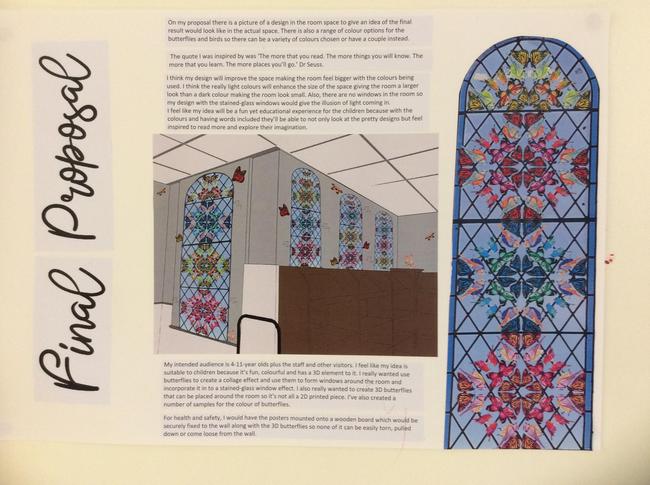 Final Proposal
On my proposal there is a picture of a design in the room space to give an idea of the final
result would look like in the actual space. There is also a range of colour options for the
butterflies and birds so there can be a variety of colours chosen or have a couple instead.
The quote I was inspired by was 'The more that you read. The more things you will know. The
more that you learn. The more places you'll go.' Dr Seuss.
I think my design will improve the space making the room feel bigger with the colours being
used. I think the really light colours will enhance the size of the space giving the room a larger
look than a dark colour making the room look small. Also, there are no windows in the room so
my design with the stained-glass windows would give the illusion of light coming in.
I feel like my idea will be a fun yet educational experience for the children because with the
colours and having words included they'll be able to not only look at the pretty designs but feel
inspired to read more and explore their imagination.
My intended audience is 4-11-year olds plus the staff and other visitors. I feel like my idea is
suitable to children because it's fun, colourful and has a 3D element to it. I really wanted use
butterflies to create a collage effect and use them to form windows around the room and
incorporate it in to a stained-glass window effect. I also really wanted to create 3D butterflies
that can be placed around the room so it's not all a 2D printed piece. I've also created a
number of samples for the colour of butterflies.
For health and safety, I would have the posters mounted onto a wooden board which would be
securely fixed to the wall along with the 3D butterflies so none of it can be easily torn, pulled
down or come loose from the wall.